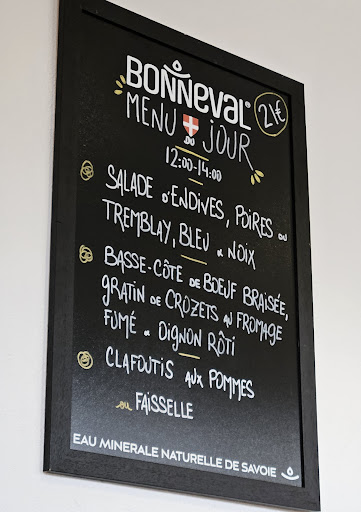 BONNEVAL®
MENU DU JOUR
21€
12:00-14:00
SALADE D'ENDIVES, POIRES DU
TREMBLAY, BLEU & NOIX
BASSE-CÔTE DE BOEUF BRAISÉE,
GRATIN DE CROZETS AU FROMAGE
FUMÉ & OIGNON RÔTI
CLAFOUTIS AUX POMMES
OU FAISSELLE
EAU MINERALE NATURELLE DE SAVOIE